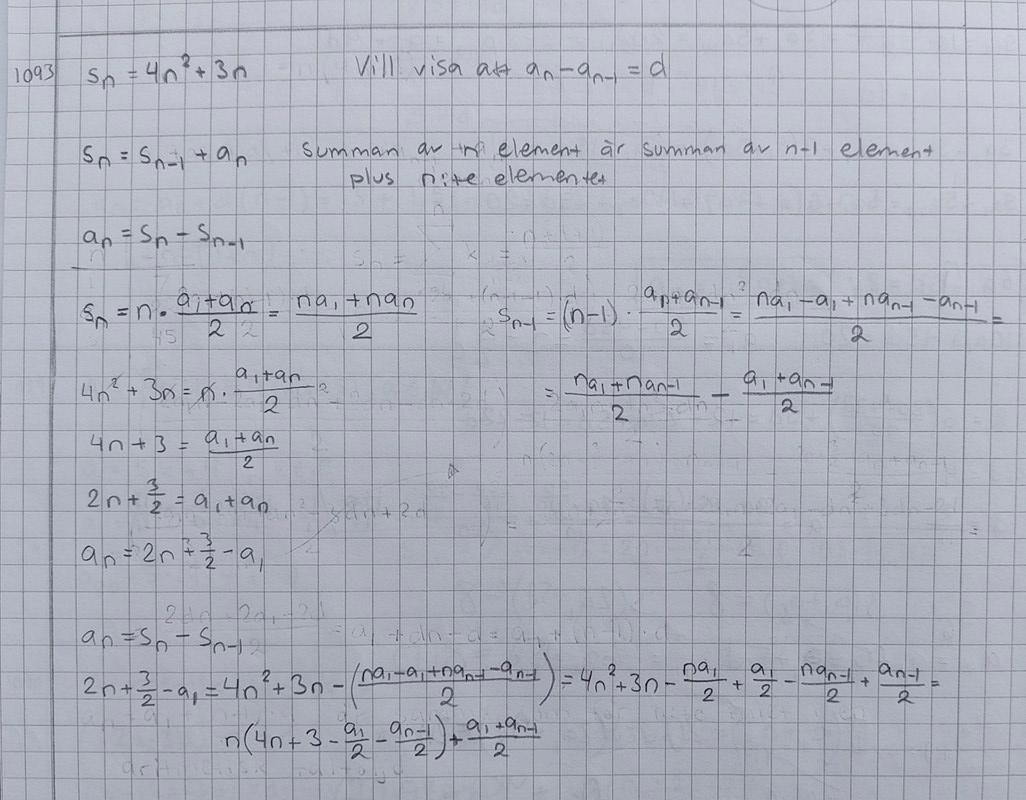 1093 Sn = 4n² + 3n Vill visa att an - an-1 = d
Sn = Sn-1 + an summan av n element är summan av n-1 element
plus n:te elementet
an = Sn - Sn-1
Sn = n · (a1 + an)/2 = (na1 + nan)/2 Sn-1 = (n-1) · (a1 + an-1)/2 = (na1 - a1 + nan-1 - an-1)/2 =
4n² + 3n = n · (a1 + an)/2 = (na1 + nan-1)/2 - (a1 + an-1)/2
4n + 3 = (a1 + an)/2
2n + 3/2 = a1 + an
an = 2n + 3/2 - a1
an = Sn - Sn-1
2n + 3/2 - a1 = 4n² + 3n - ((na1 - a1 + nan-1 - an-1)/2) = 4n² + 3n - na1/2 + a1/2 - nan-1/2 + an-1/2 =
n(4n + 3 - a1/2 - an-1/2) + (a1 + an-1)/2